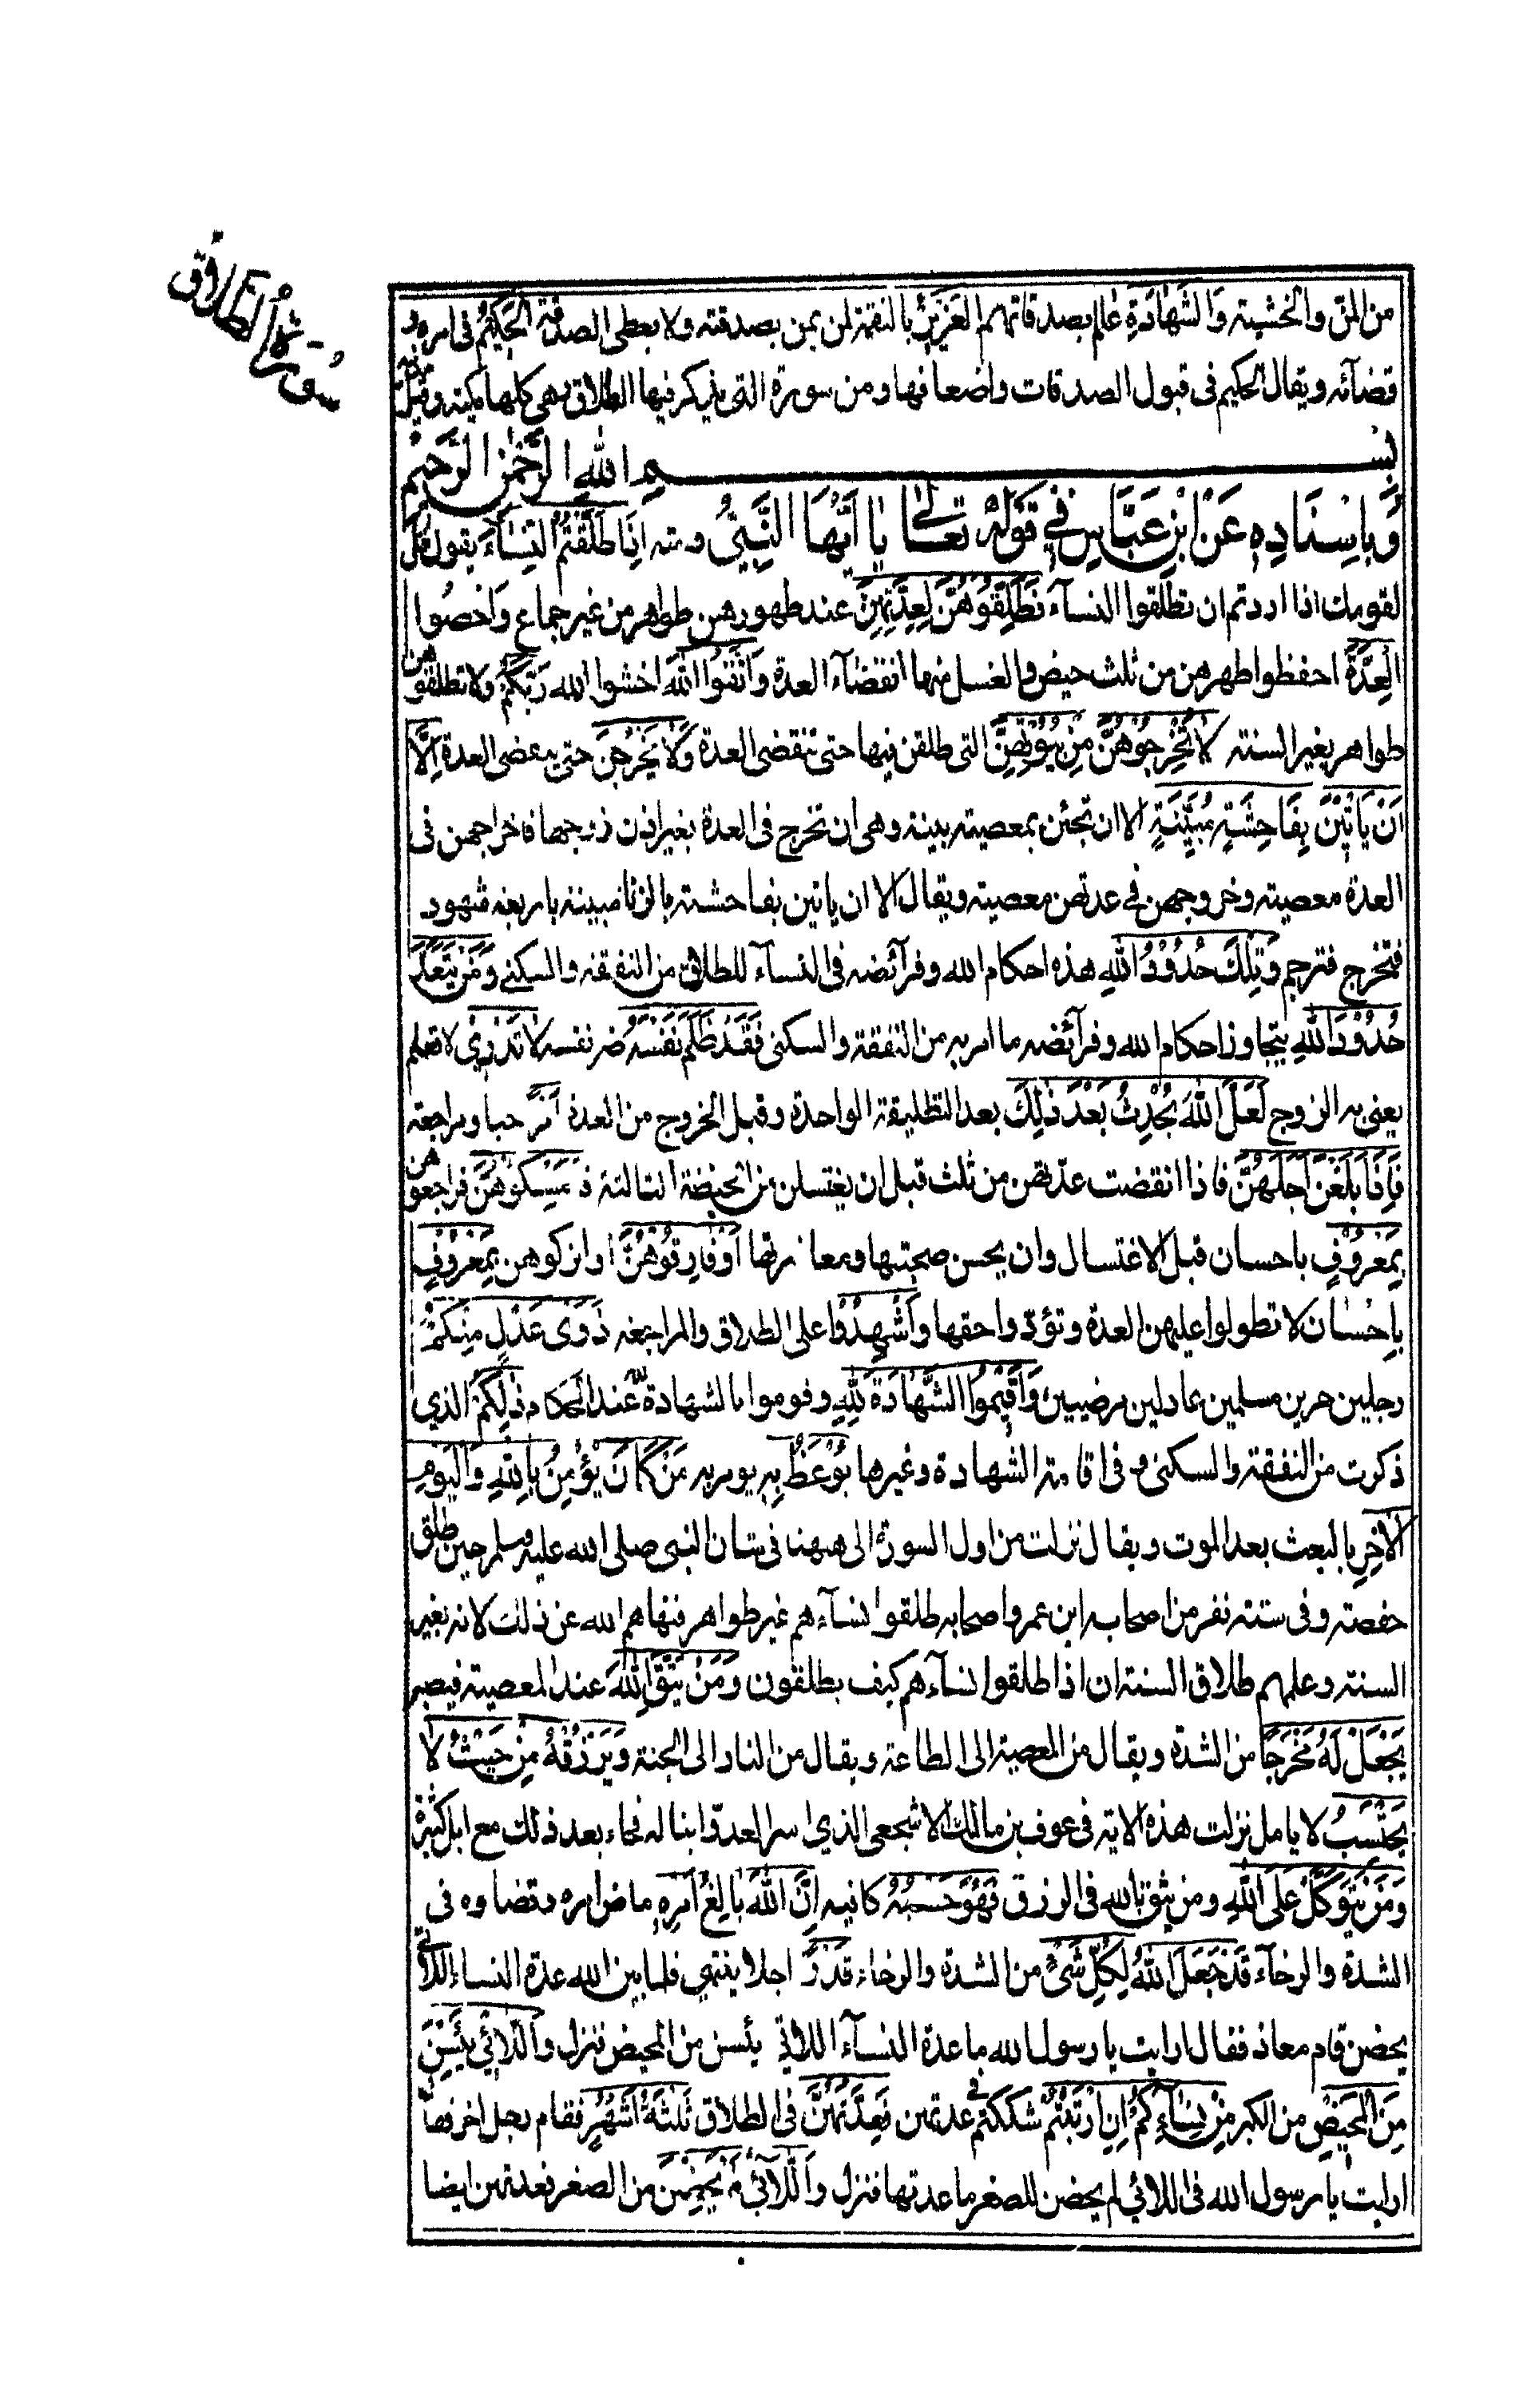 سورة الطلاق
من المن والخشية وَالشَّهَادَةِ عالم بصدقاتهم الْعَزِيزُ بالنقمة لمن يمن بصدقته ولا يعطى الصدقة الْحَكِيمُ فى امره و
قضآئه ويقال الحكيم فى قبول الصدقات واضعافها ومن سورة التى يذكر فيها الطلاق وهى كلها مكية وقيل مدنية
بِسْمِ اللهِ الرَّحْمٰنِ الرَّحِيْمِ
وَبِاِسْنَادِهٖ عَنْ ابْنِ عَبَّاسٍ فِي قَوْلِهٖ تَعَالٰى يَا اَيُّهَا النَّبِيُّ وامته اِذَا طَلَّقْتُمُ النِّسَآءَ يقول قل
لقومك اذا اردتم ان تطلقوا النسآء فَطَلِّقُوْهُنَّ لِعِدَّتِهِنَّ عند طهورهن طواهر من غير جماع وَاَحْصُوا
الْعِدَّةَ احفظوا طهرهن من ثلث حيض والغسل منها انقضآء العدة وَاتَّقُوا اللهَ اخشوا الله رَبَّكُمْ ولا تطلقوهن
طواهر بغير السنة لَا تُخْرِجُوْهُنَّ مِنْ بُيُوْتِهِنَّ التى طلقن فيها حتى تنقضى العدة وَلَا يَخْرُجْنَ حتى ينقضى العدة اِلَّا
اَنْ يَاْتِيْنَ بِفَاحِشَةٍ مُبَيِّنَةٍ الا ان تجئن بمعصية بينة وهى ان تخرج فى العدة بغير اذن زوجها فاخراجهن فى
العدة معصية وخروجهن في عدتهن معصية ويقال الا ان ياتين بفاحشة بالزنا مبينة باربعة شهود
فتخرج فترجم وَتِلْكَ حُدُوْدُ اللهِ هذه احكام الله وفرآئضه فى النسآء للطلاق من النفقة والسكنى وَمَنْ يَتَعَدَّ
حُدُوْدَ اللهِ يتجاوز احكام الله وفرآئضه ما امر به من النفقة والسكنى فَقَدْ ظَلَمَ نَفْسَهُ ضر نفسه لَا تَدْرِيْ لا تعلم
يعنى به الزوج لَعَلَّ اللهَ يُحْدِثُ بَعْدَ ذٰلِكَ بعد التطليقة الواحدة وقبل الخروج من العدة اَمْرًا حبا ومراجعة
فَاِذَا بَلَغْنَ اَجَلَهُنَّ فاذا انقضت عدتهن من ثلث قبل ان يغتسلن من الحيضة الثالثة فَاَمْسِكُوْهُنَّ فراجعوهن
بِمَعْرُوْفٍ باحسان قبل الاغتسال وان يحسن صحبتها ومعاشرتها اَوْ فَارِقُوْهُنَّ او اتركوهن بِمَعْرُوْفٍ
باِحسان لا تطولوا عليهن العدة وتؤدوا حقها وَاَشْهِدُوْا على الطلاق والمراجعة ذَوَىْ عَدْلٍ مِنْكُمْ
رجلين حرين مسلمين عادلين مرضيين وَاَقِيْمُوا الشَّهَادَةَ لِلّٰهِ وقوموا بالشهادة لله عند الحكام ذٰلِكُمْ الذي
ذكرت من النفقة والسكنى و فى اقامة الشهادة وغيرها يُوْعَظُ بِهٖ يومر به مَنْ كَانَ يُؤْمِنُ بِاللهِ وَالْيَوْمِ
الْاٰخِرِ بالبعث بعد الموت ويقال نزلت من اول السورة الى ههنا فى شان النبى صلى الله عليه وسلم حين طلق
حفصة وفى ستة نفر من اصحابه ابن عمر واصحابه طلقوا نسآءهم غير طواهر فنهاهم الله عن ذلك لانه بغير
السنة وعلمهم طلاق السنة ان اذا طلقوا نسآءهم كيف يطلقون وَمَنْ يَتَّقِ اللهَ عند المعصية فيصبر
يَجْعَلْ لَهُ مَخْرَجًا من الشدة ويقال من المعصية الى الطاعة ويقال من النار الى الجنة وَيَرْزُقْهُ مِنْ حَيْثُ لَا
يَحْتَسِبُ لا يامل نزلت هذه الاية فى عوف بن مالك الاشجعى الذي اسر العدو ابنا له فجاء بعد ذلك مع ابل كثيرة
وَمَنْ يَتَوَكَّلْ عَلَى اللهِ ومن يثق بالله فى الرزق فَهُوَ حَسْبُهُ كافيه اِنَّ اللهَ بَالِغُ اَمْرِهٖ ماض امره وقضاوه فى
الشدة والرخآء قَدْ جَعَلَ اللهُ لِكُلِّ شَيْءٍ من الشدة والرخاء قَدْرًا اجلا ينتهي فلما بين الله عدة النساء اللاتي
يحضن قام معاذ فقال ارايت يا رسول الله ما عدة النسآء اللائي يئسن من المحيض فنزل وَاللَّائِي يَئِسْنَ
مِنَ الْمَحِيْضِ من الكبر مِنْ نِسَآءِكُمْ اِنِ ارْتَبْتُمْ شككتم في عدتهن فَعِدَّتُهُنَّ فى الطلاق ثَلٰثَةُ اَشْهُرٍ فقام رجل اخر فقال
ارايت يا رسول الله فى اللائي لم يحضن للصغر ما عدتها فنزل وَاللَّآئِيْ لَمْ يَحِضْنَ من الصغر فعدتهن ايضا